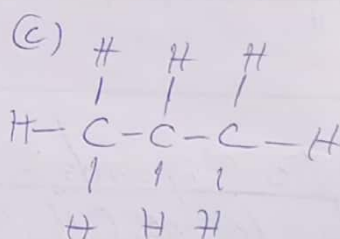 (C)
H H H
H-C-C-C-H
H H H